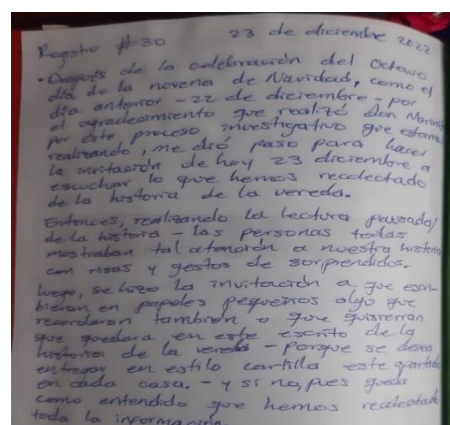 Registro #30 23 de diciembre 2022
• Después de la celebración del Octavo
día de la novena de Navidad, como el
día anterior - 22 de diciembre - por
el agradecimiento que realizó don
por este proceso investigativo que estamos
realizando, me dió paso para hacer
la invitación de hoy 23 diciembre a
escuchar lo que hemos recolectado
de la historia de la vereda.
Entonces, realizando la lectura pausada
de la historia - las personas todas
mostraban tal atención a nuestra historia
con risas y gestos de sorprendidos.
Luego, se hizo la invitación a que escri-
bieran en papeles pequeños algo que
recordaran también o que quisieran
que quedara en este escrito de la
historia de la vereda - porque se desea
entregar en estilo cartilla este apartado
en cada casa. - y si no, pues queda
como entendido que hemos recolectado
toda la información.